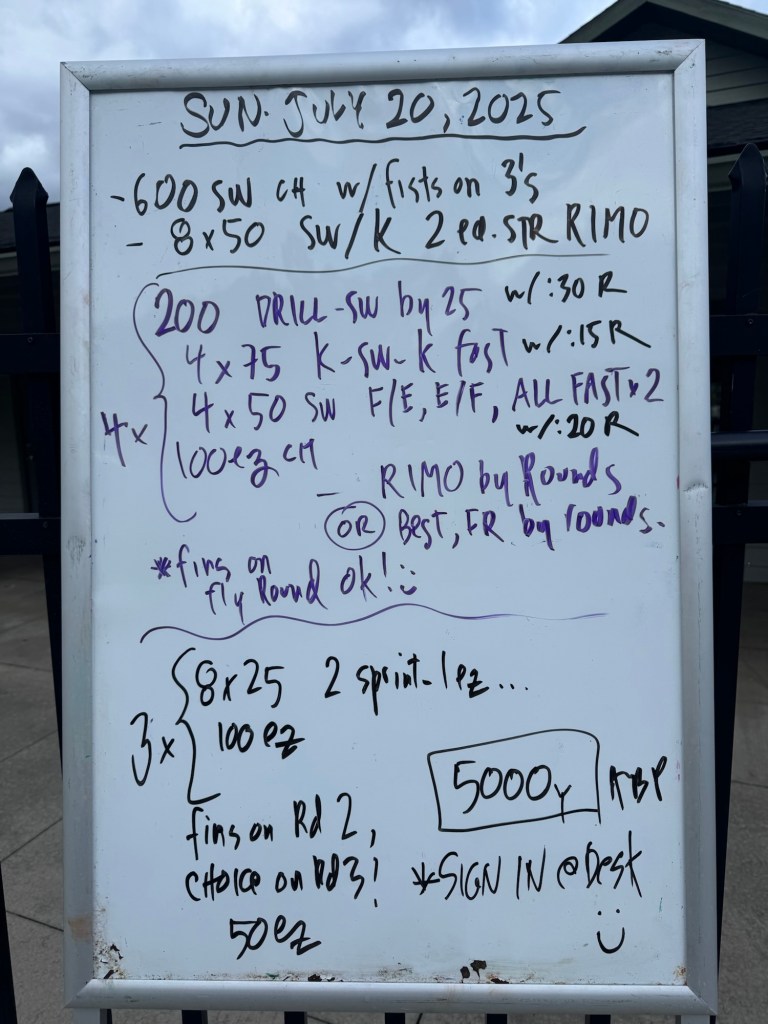 SUN. JULY 20, 2025
-600 SW CH w/ fists on 3's
- 8x50 SW/K 2 ea. STR RIMO
4x
200 DRILL-SW by 25 w/:30 R
4x75 K-SW-K fast w/:15 R
4x50 SW F/E, E/F, ALL FAST x2
w/:20 R
100 ez CH
- RIMO by Rounds
OR Best, FR by rounds.
*fins on
fly Round ok! :)
3x
8x25 2 sprint-1 ez...
100 ez
fins on Rd 2,
CHOICE on Rd 3!
5000y
*SIGN IN @ Desk
:)
50 ez